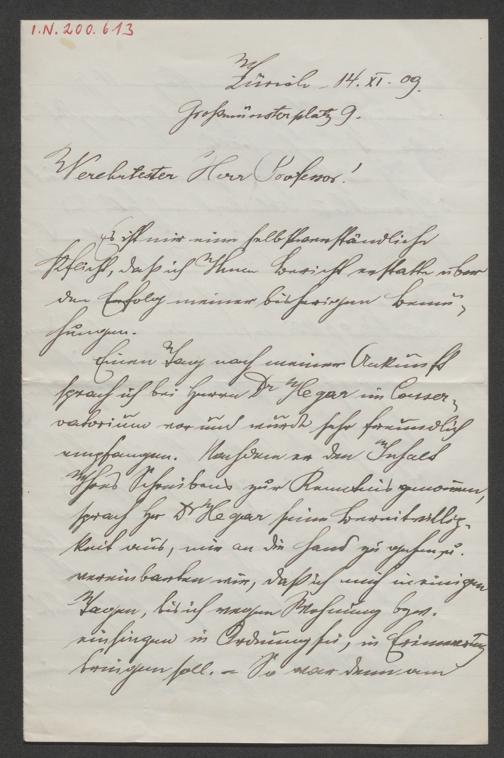 I.N. 200.613
Zürich – 14. XI. 09.
Großmünsterplatz 9.
Verehrtester Herr Professor!
Es ist mir eine selbstverständliche
Pflicht, daß ich Ihnen Bericht erstatte über
den Erfolg meiner bisherigen Bemü-
hungen.
Einen Tag nach meiner Ankunft
sprach ich bei Herrn Dr Hegar im Conser-
vatorium vor und wurde sehr freundlich
empfangen. Nachdem er den Inhalt
Ihres Schreibens zur Kenntnis genommen,
sprach Hr Dr Hegar seine Bereitwillig-
keit aus, mir an die Hand zu gehen u.
vereinbarten wir, daß ich mich in einigen
Tagen, bis ich wegen Wohnung bzw.
in Ordnung sei, in Erinnerung
bringen soll. – So war denn am